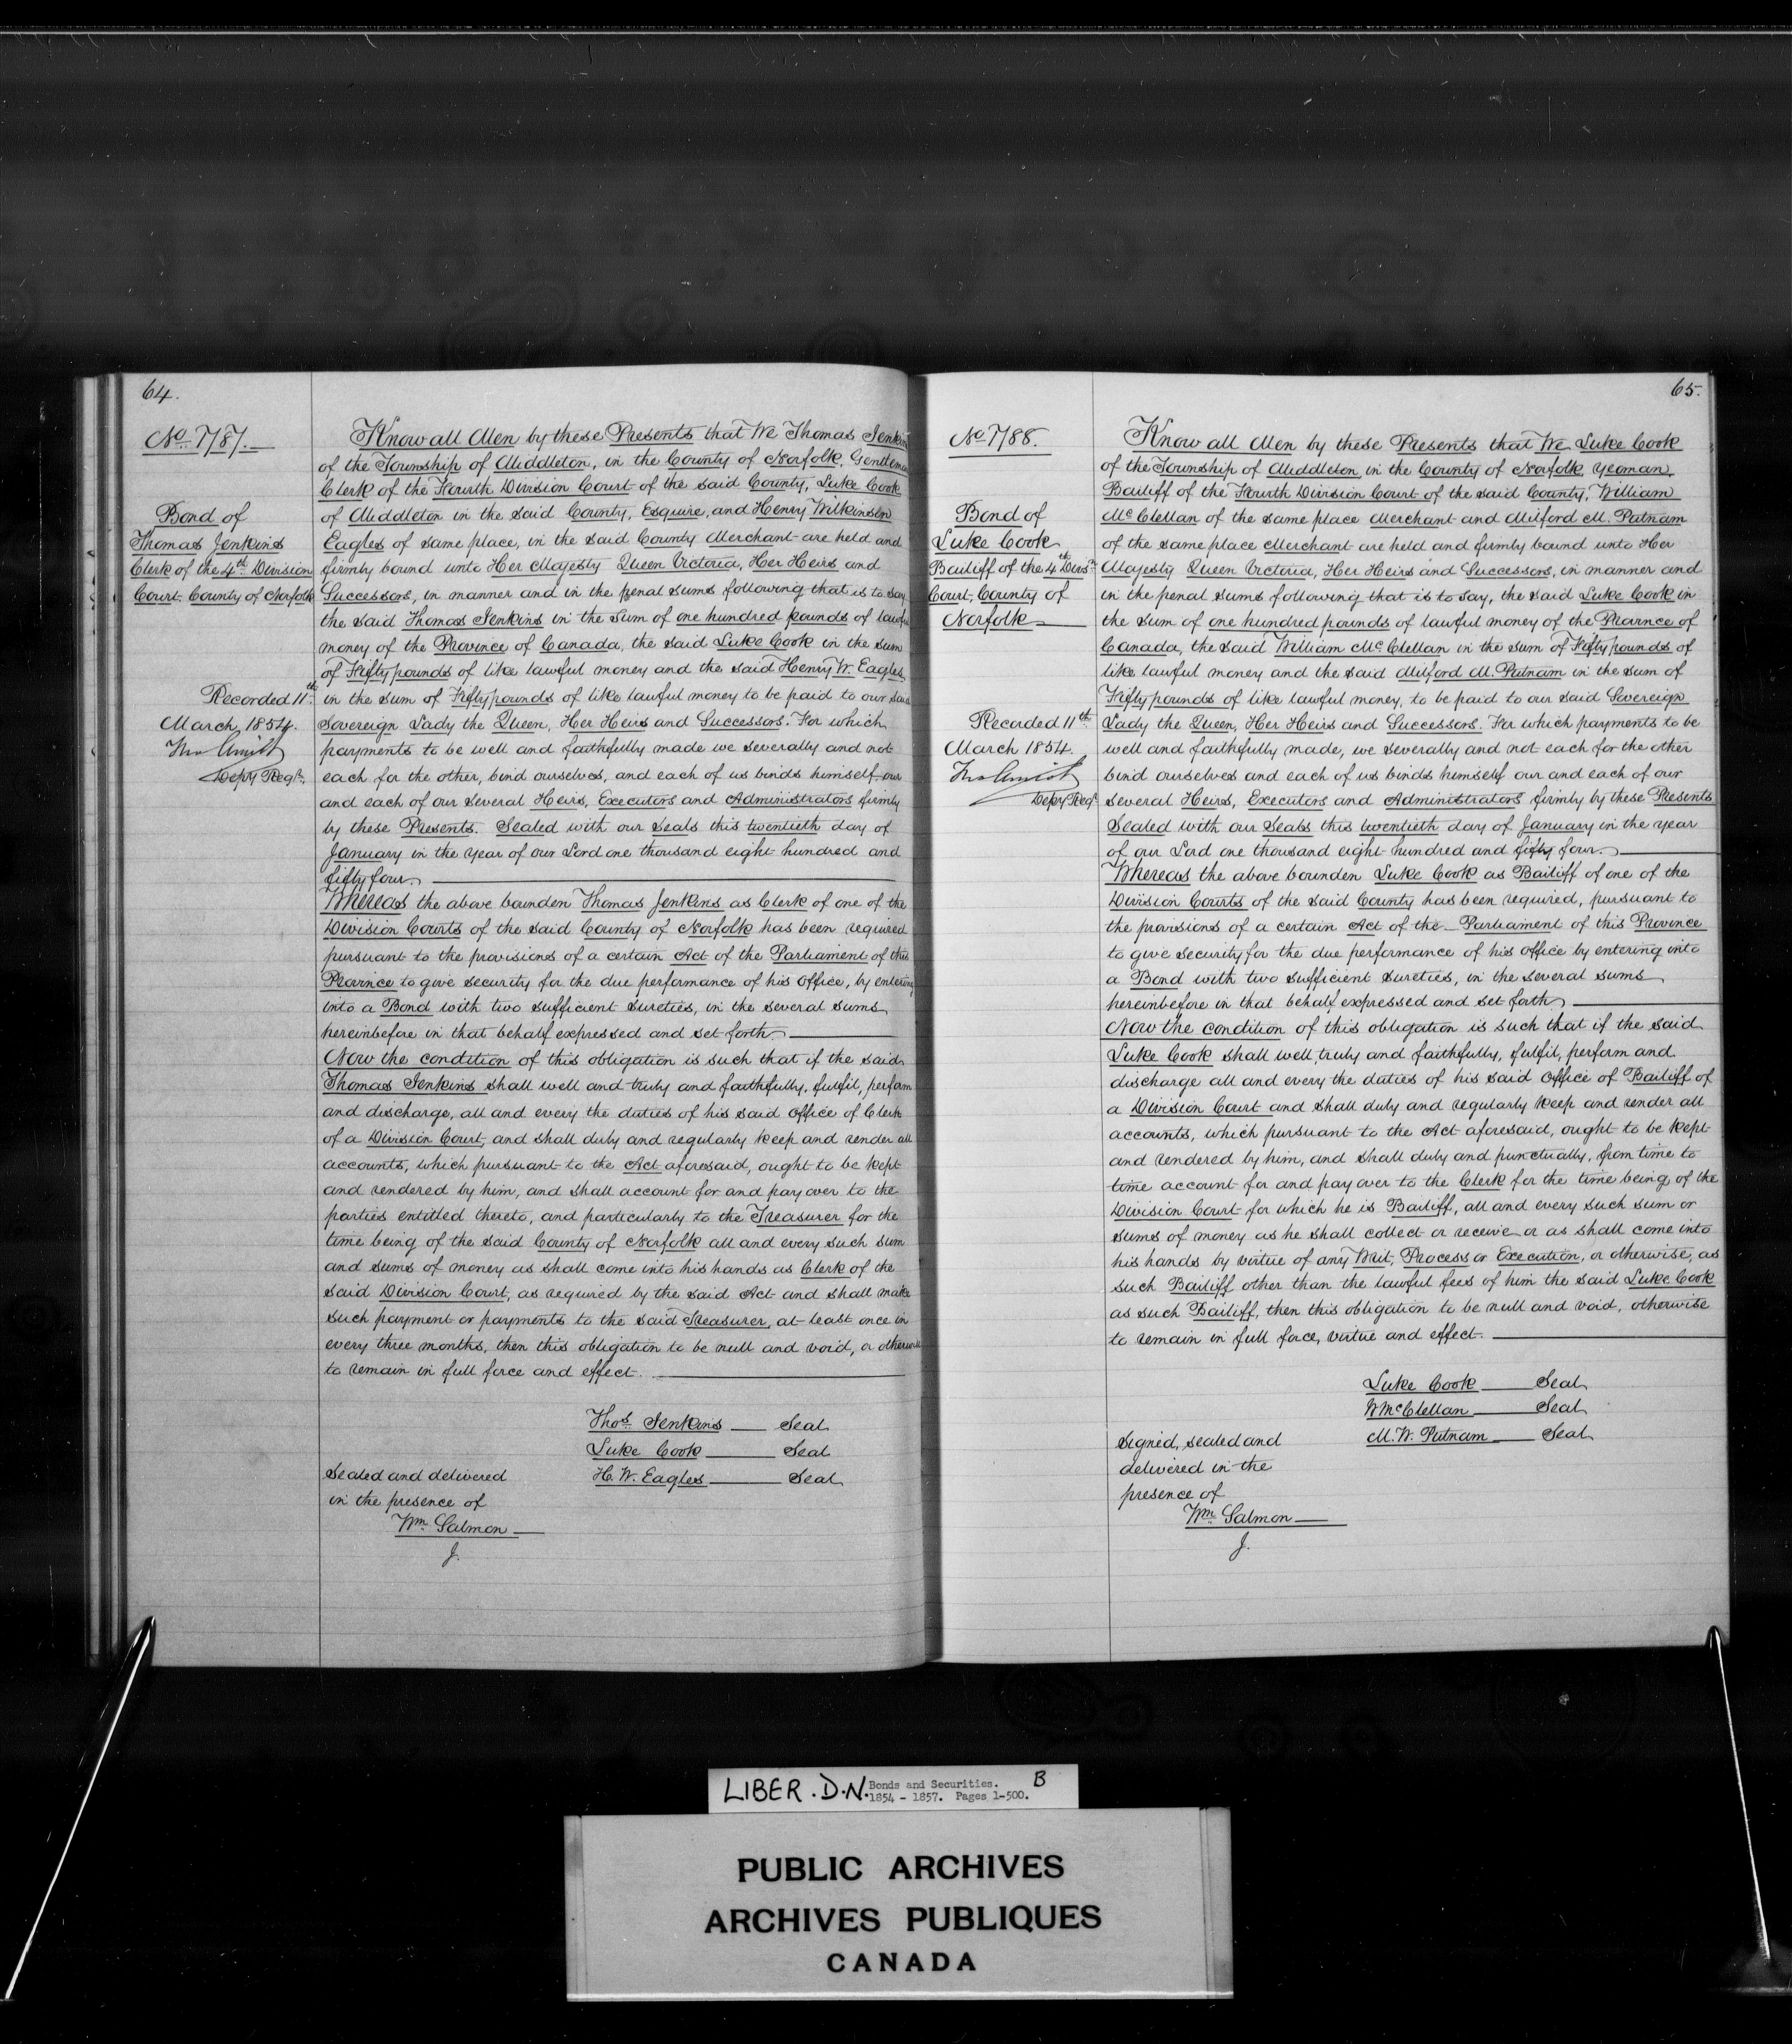 64.
No. 7787.
Bond of
Thomas Jenkins
Clerk of the 4th Division
Court, County of Norfolk
Recorded 11th
March 1854.
Depy Regr.
Know all Men by these Presents that We Thomas Jenkins
of the Township of Middleton, in the County of Norfolk, Gentleman
Clerk of the Fourth Division Court of the said County, Luke Cook
of Middleton in the said County, Esquire, and Henry Wilkinson
Eagles of same place, in the said County Merchant are held and
firmly bound unto Her Majesty Queen Victoria, Her Heirs and
Successors, in manner and in the penal sums following that is to say
the said Thomas Jenkins in the Sum of one hundred pounds of lawful
money of the Province of Canada, the said Luke Cook in the sum
of Fifty pounds of like lawful money and the said Henry W. Eagles
in the sum of Fifty pounds of like lawful money to be paid to our said
Sovereign Lady the Queen, Her Heirs and Successors. For which
payments to be well and faithfully made we severally and not
each for the other, bind ourselves, and each of us binds himself our
and each of our several Heirs, Executors and Administrators firmly
by these Presents. Sealed with our Seals this twentieth day of
January in the year of our Lord one thousand eight hundred and
fifty four.
Whereas the above bounden Thomas Jenkins as Clerk of one of the
Division Courts of the said County of Norfolk has been required
pursuant to the provisions of a certain Act of the Parliament of this
Province to give security for the due performance of his Office, by entering
into a Bond with two sufficient sureties, in the several sums
hereinbefore in that behalf expressed and set forth.
Now the condition of this obligation is such that if the said
Thomas Jenkins shall well and truly and faithfully, fulfil, perform
and discharge, all and every the duties of his said Office of Clerk
of a Division Court, and shall duly and regularly keep and render all
accounts, which pursuant to the Act aforesaid, ought to be kept
and rendered by him, and shall account for and pay over to the
parties entitled thereto, and particularly to the Treasurer for the
time being of the said County of Norfolk all and every such sum
and sums of money as shall come into his hands as Clerk of the
said Division Court, as required by the said Act and shall make
such payment or payments to the said Treasurer, at least once in
every three months, then this obligation to be null and void, or otherwise
to remain in full force and effect.
Thos. Jenkins Seal
Luke Cook Seal
H. W. Eagles Seal
Sealed and delivered
in the presence of
Wm. Salmon
J.
65.
No. 7788.
Bond of
Luke Cook
Bailiff of the 4th Divisn.
Court, County of
Norfolk
Recorded 11th
March 1854.
Depy Regr.
Know all Men by these Presents that We Luke Cook
of the Township of Middleton, in the County of Norfolk Yeoman,
Bailiff of the Fourth Division Court of the said County, William
McClellan of the same place Merchant and Milford M. Putnam
of the same place Merchant are held and firmly bound unto Her
Majesty Queen Victoria, Her Heirs and Successors, in manner and
in the penal sums following that is to say, the said Luke Cook in
the sum of one hundred pounds of lawful money of the Province of
Canada, the said William McClellan in the sum of Fifty pounds of
like lawful money and the said Milford M. Putnam in the sum of
Fifty pounds of like lawful money, to be paid to our said Sovereign
Lady the Queen, Her Heirs and Successors. For which payments to be
well and faithfully made, we severally and not each for the other
bind ourselves and each of us binds himself our and each of our
several Heirs, Executors and Administrators firmly by these Presents
Sealed with our Seals this twentieth day of January in the year
of our Lord one thousand eight hundred and fifty four.
Whereas the above bounden Luke Cook as Bailiff of one of the
Division Courts of the said County has been required, pursuant to
the provisions of a certain Act of the Parliament of this Province
to give security for the due performance of his Office by entering into
a Bond with two sufficient sureties, in the several sums
hereinbefore in that behalf expressed and set forth
Now the condition of this obligation is such that if the said
Luke Cook shall well, truly and faithfully, fulfil, perform and
discharge all and every the duties of his said Office of Bailiff of
a Division Court and shall duly and regularly keep and render all
accounts, which pursuant to the Act aforesaid, ought to be kept
and rendered by him, and shall duly and punctually, from time to
time account for and pay over to the Clerk for the time being of the
Division Court for which he is Bailiff, all and every such sum or
sums of money as he shall collect or receive or as shall come into
his hands by virtue of any Writ, Process or Execution, or otherwise, as
such Bailiff other than the lawful fees of him the said Luke Cook
as such Bailiff, then this obligation to be null and void, otherwise
to remain in full force, virtue and effect.
Luke Cook Seal
W McClellan Seal
M. W. Putnam Seal
Signed, sealed and
delivered in the
presence of
Wm. Salmon
J.
LIBER . D.N. Bonds and Securities. B
1854 - 1857. Pages 1-500.
PUBLIC ARCHIVES
ARCHIVES PUBLIQUES
CANADA